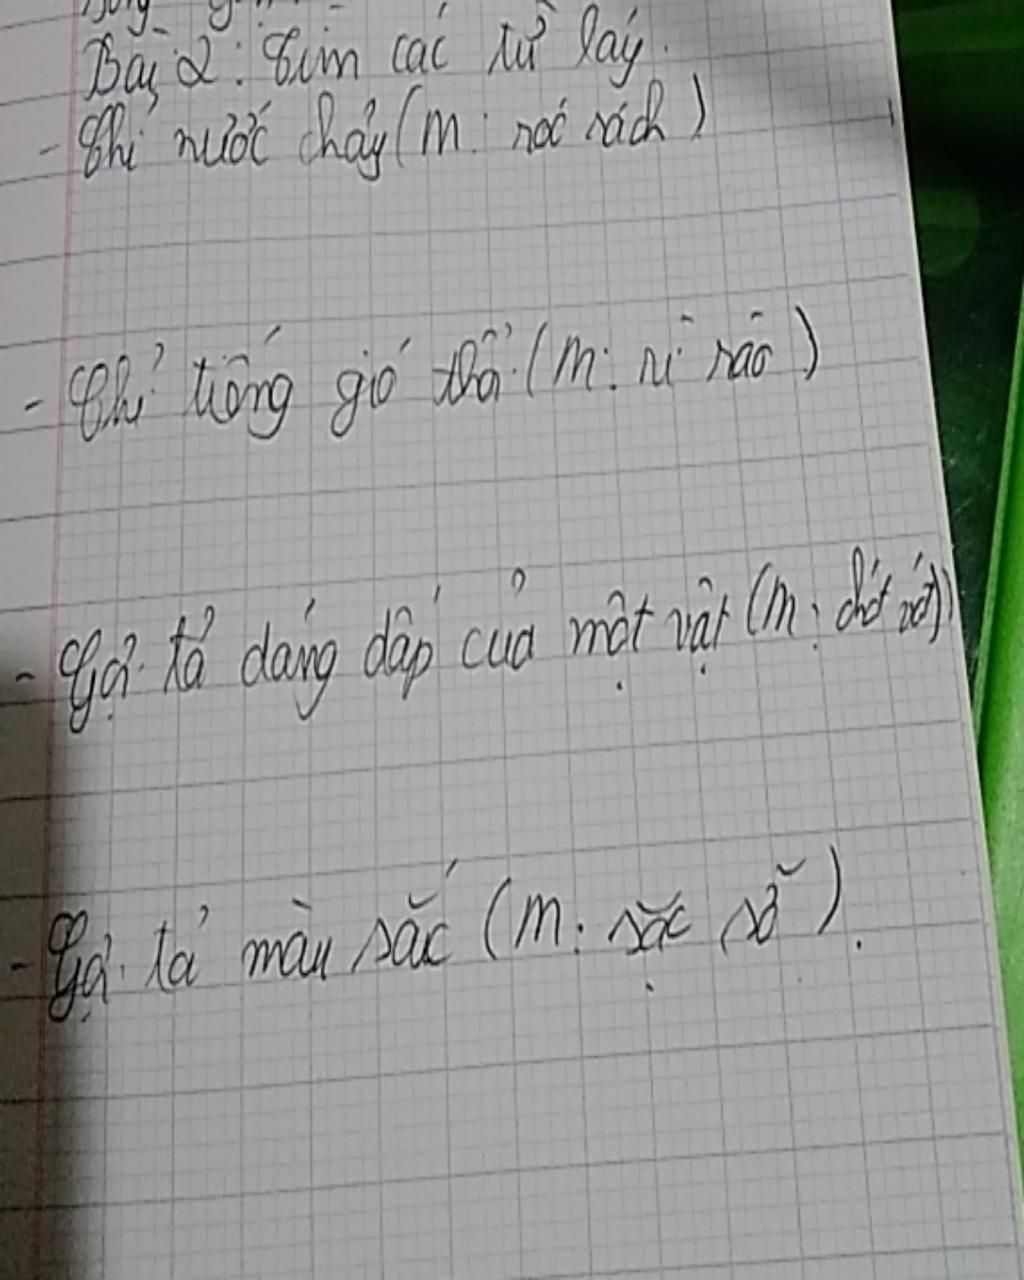 Bài 2: Tìm các từ láy.
- Chỉ nước chảy (m: róc rách)
- Chỉ tiếng gió thổi (m: rì rào)
- Gợi tả dáng dấp của một vật (m: chót vót)
- Gợi tả màu sắc (m: sặc sỡ).